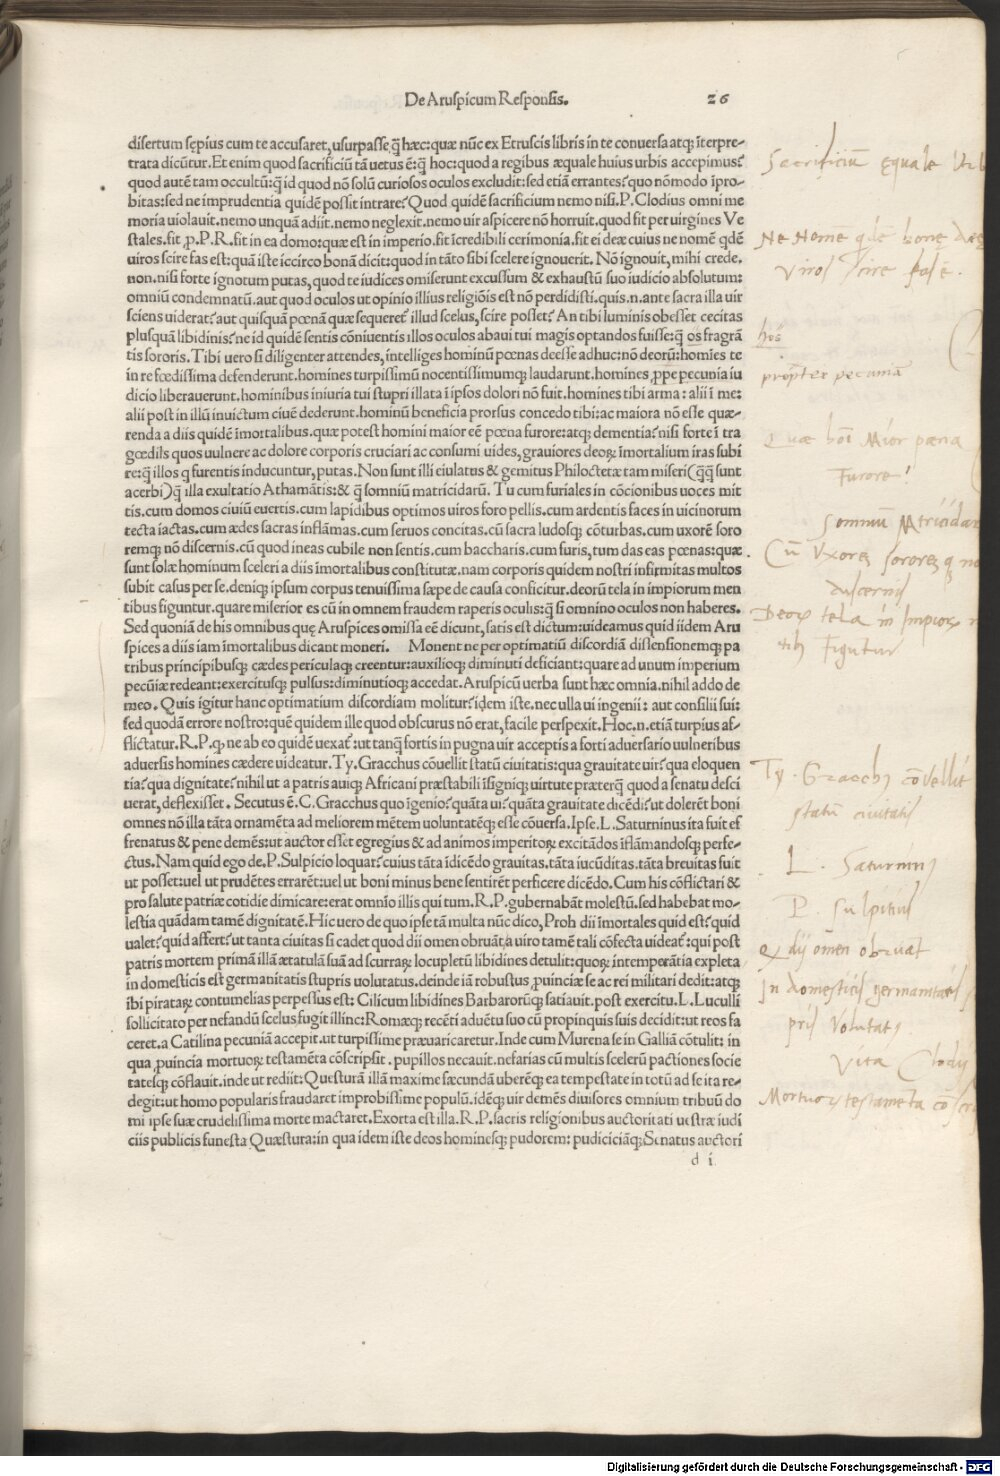 De Aruspicum Responsis. 26
disertum sępius cum te accusaret, usurpasse, q̃ hæc: quæ nūc ex Etruscis libris in te conuersa atq; īterpre-
trata dicūtur. Et enim quod sacrificiū tā uetus ē: q̃ hoc: quod a regibus æquale huius urbis accepimus?
quod autē tam occultū: q̃ id quod nō solū curiosos oculos excludit: sed etiā errantes? quo nōmodo īpro-
bitas: sed ne imprudentia quidē possit intrare? Quod quidē sacrificium nemo nisi. P. Clodius omni me
moria uiolauit. nemo unquā adiit. nemo neglexit. nemo uir aspicere nō horruit. quod fit per uirgines Ve
stales. fit ꝓ. P. R. fit in ea domo: quæ est in imperio. fit īcredibili cerimonia. fit ei deæ cuius ne nomē qdē
uiros scire fas est: quā iste iccirco bonā dicit: quod in tāto sibi scelere ignouerit. Nō ignouit, mihi crede.
non. nisi forte ignotum putas, quod te iudices omiserunt excussum & exhaustū suo iudicio absolutum:
omniū condemnatū. aut quod oculos ut opinio illius religiōis est nō perdidisti. quis. n. ante sacra illa uir
sciens uiderat? aut quisquā pœnā quæ sequeret̃ illud scelus, scire posset? An tibi luminis obesset cecitas
plusquā libidinis? ne id quidē sentis cōniuentis illos oculos abaui tui magis optandos fuisse: q̃ os̄ fragrā
tis sororis. Tibi uero si diligenter attendes, intelliges hominū pœnas deesse adhuc: nō deorū: homies te
in re fœdissima defenderunt. homines turpissimū nocentissimumq; laudarunt. homines, ꝓpe pecunia iu
dicio liberauerunt. hominibus iniuria tui stupri illata ī ipsos dolori nō fuit. homines tibi arma: alii ī me:
alii post in illū inuictum ciuē dederunt. hominū beneficia prorsus concedo tibi: ac maiora nō esse quæ-
renda a diis quidē īmortalibus. quæ potest homini maior eē pœna furore: atq; dementia? nisi forte ī tra
gœdiis quos uulnere ac dolore corporis cruciari ac consumi uides, grauiores deorꝝ īmortalium iras subi
re: q̃ illos q furentis inducuntur, putas. Non sunt illi eiulatus & gemitus Philoctetæ tam miseri (q̃q̃ sunt
acerbi) q̃ illa exultatio Athamātis: & q̃ somniū matricidarū. Tu cum furiales in cōcionibus uoces mit
tis. cum domos ciuiū euertis. cum lapidibus optimos uiros foro pellis. cum ardentis faces in uicinorum
tecta iactas. cum ædes sacras inflāmas. cum seruos concitas. cū sacra ludosq; cōturbas. cum uxorē soro
remq; nō discernis. cū quod ineas cubile non sentis. cum baccharis. cum furis, tum das eas pœnas: quæ
sunt solæ hominum sceleri a diis īmortalibus constitutæ. nam corporis quidem nostri infirmitas multos
subit casus per se. deniq; ipsum corpus tenuissima sæpe de causa conficitur. deorū tela in impiorum men
tibus figuntur. quare miserior es cū in omnem fraudem raperis oculis: q̃ si omnino oculos non haberes.
Sed quoniā de his omnibus quę Aruspices omissa eē dicunt, satis est dictum: uideamus quid iidem Aru
spices a diis iam īmortalibus dicant moneri. Monent ne per optimatiū discordiā dissensionemq; pa
tribus principibusq; cædes periculaq; creentur: auxilioq; diminuti deficiant: quare ad unum imperium
pecūiæ redeant: exercitusq; pulsus: diminutioq; accedat. Aruspicū uerba sunt hæc omnia. nihil addo de
meo. Quis igitur hanc optimatium discordiam molitur? idem iste. nec ulla ui ingenii: aut consilii sui:
sed quodā errore nostro: quē quidem ille quod obscurus nō erat, facile perspexit. Hoc. n. etiā turpius af-
flictatur. R. P. ꝙ ne ab eo quidē uexat̃: ut tanq̃ fortis in pugna uir acceptis a forti aduersario uulneribus
aduersis homines cædere uideatur. Ty. Gracchus cōuellit statū ciuitatis: qua grauitate uir? qua eloquen
tia? qua dignitate? nihil ut a patris auiq; Africani præstabili īsigniq; uirtute præterq̃ quod a senatu desci
uerat, deflexisset. Secutus ē. C. Gracchus quo īgenio? quāta ui? quāta grauitate dicēdi? ut dolerēt boni
omnes nō illa tāta ornamēta ad meliorem mētem uoluntatēq; esse cōuersa. Ipse. L. Saturninus ita fuit ef
frenatus & pene demēs: ut auctor esset egregius & ad animos imperitorꝝ excitādos īflamandosq; perfe-
ctus. Nam quid ego de. P. Sulpicio loquar? cuius tāta īdicēdo grauitas. tāta iucūditas. tāta breuitas fuit
ut posset: uel ut prudētes errarēt: uel ut boni minus bene sentirēt perficere dicēdo. Cum his cōflictari &
pro salute patriæ cotidie dimicare: erat omnīo illis qui tum. R. P. gubernabāt molestū. sed habebat mo-
lestia quādam tamē dignitatē. Hic uero de quo ipse tā multa nūc dico, Proh dii īmortales quid est? quid
ualet? quid affert? ut tanta ciuitas si cadet quod dii omen obruāt, a uiro tamē tali cōfecta uideat̃: qui post
patris mortem primā illā ætatulā suā ad scurraꝝ locupletū libidines detulit: quorꝝ intemperātia expleta
in domesticis est germanitatis stupris uolutatus. deinde iā robustus ꝓuinciæ se ac rei militari dedit: atq;
ibi piratarꝝ contumelias perpessus est: Cilicum libidines Barbarorūq; satiauit. post exercitū. L. Luculli
sollicitato per nefandū scelus fugit illinc: Romæq; recēti aduētu suo cū propinquis suis decidit: ut reos fa
ceret. a Catilina pecuniā accepit. ut turpissime præuaricaretur. Inde cum Murena se in Galliā cōtulit: in
qua ꝓuincia mortuorꝝ testamēta cōscripsit. pupillos necauit. nefarias cū multis scelerū pactiones socie
tatesq; cōflauit. inde ut rediit: Questurā illā maxime fæcundā uberēq; ea tempestate in totū ad se ita re-
degit: ut homo popularis fraudaret improbissime populū. idēq; uir demēs diuisores omnium tribuū do
mi ipse suæ crudelissima morte mactaret. Exorta est illa. R. P. sacris religionibus auctoritati uestræ iudi
ciis publicis funesta Quæstura: in qua idem iste deos hominesq; pudorem: pudiciciāq; Senatus auctori
d i
Sacrificiū ęquale Urb
Ne Nome qdē bonę deę
Viros scire fas ē.
hōs
propter pecuniā
Quæ hoī Maior pœna
Furore?
Somniū Matricidar
Cū Vxorē sororēq nō
discernis
Deorꝝ tela in Impiorꝝ
tib Figūtur
Ty. Gracchus cōvellit
statū ciuitatis
L. Saturninus
P. Sulpitius
Q dij omen obruāt
In domesticis germanitatis
pris Volutatꝰ
Vita Clodij
Mortuorꝝ testamēta cō
Digitalisierung gefördert durch die Deutsche Forschungsgemeinschaft - DFG